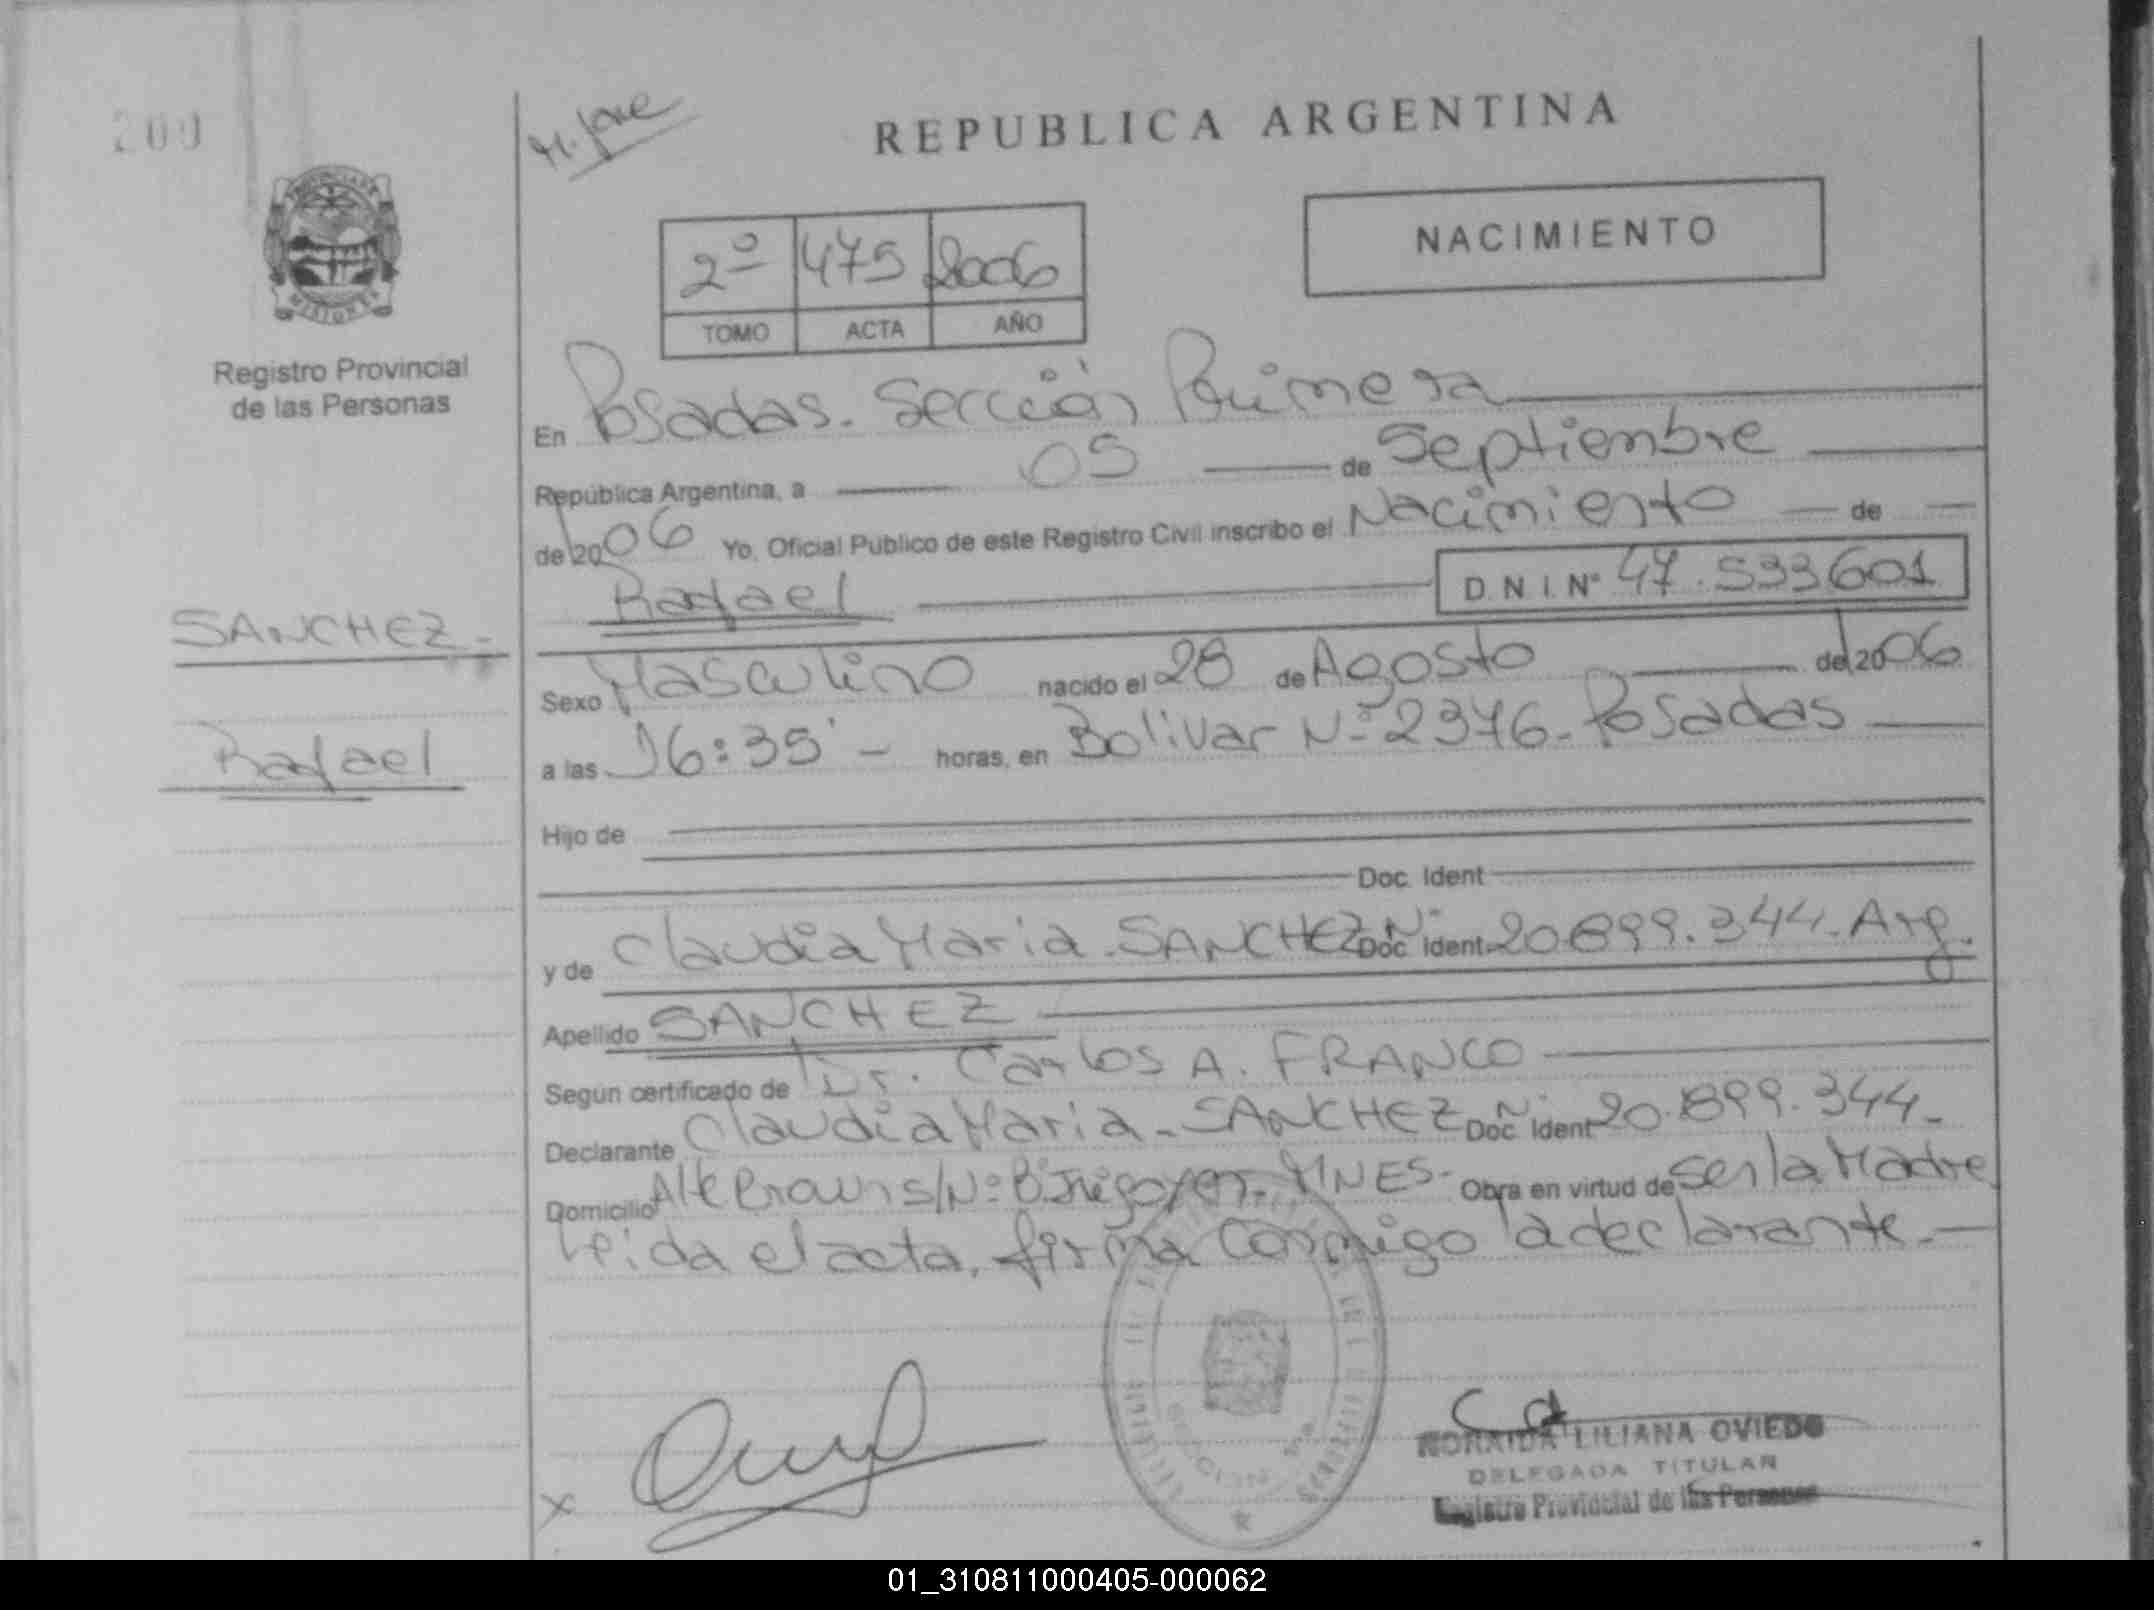 200
REPUBLICA ARGENTINA
PROVINCIA DE
MISIONES
2º 475 2006
TOMO ACTA AÑO
NACIMIENTO
Registro Provincial
de las Personas
En Posadas. Sección Primera
República Argentina, a 05 de Septiembre
de 2006 Yo, Oficial Público de este Registro Civil inscribo el Nacimiento de
Rafael D.N.I. Nº 47.533601
SANCHEZ-
Rafael
Sexo Masculino nacido el 28 de Agosto del 2006
a las 16:35' - horas, en Bolivar Nº 2376- Posadas
Hijo de
Doc. Ident
y de Claudia Maria - SANCHEZ Doc. Ident Nº 20.899.344- Arg.
Apellido SANCHEZ
Según certificado de Dr. Carlos A. FRANCO
Declarante Claudia Maria - SANCHEZ Doc. Ident Nº 20.899.344-
Domicilio Alte Brown s/Nº Bº MNES- Obra en virtud de ser la Madre
Leida el acta, firma conmigo la declarante.-
LILIANA OVIEDO
DELEGADA TITULAR
Registro Provincial de las Personas
01_310811000405-000062